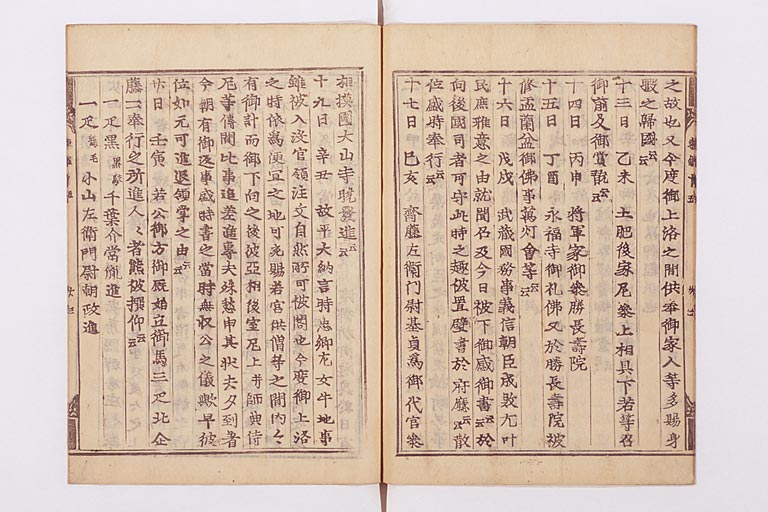 之故也又今度御上洛之間供奉御家人等多賜身
暇之歸國云云
十三日 乙未 土肥後家尼參上相具下若等召
御前及御賞翫云云
十四日 丙申 將軍家御參勝長壽院
十五日 丁酉 永福寺御礼佛又於勝長壽院被
修盂蘭盆御佛事萬灯會等云云
十六日 戊戌 武藏國務事義信朝臣成敗尤叶
民庶雅意之由就聞召及今日被下御感御書云云於
向後國司者可守此時之趣被置壁書於府廳云云散
位盛時奉行云云
十七日 己亥 齋藤左衛門尉基員為御代官參
相摸國大山寺暁進云云
十九日 辛丑 故平大納言時忠卿左女牛地事
雖被入没官領注文自然所可被閣也今度御上洛
之時依為便宜之地可充賜若宮供僧等之間内々
有御計而御下向之後彼亞相後室尼上并師典侍
尼等傳聞此事進差進專夫殊愁申其状去夕到着
今朝有御返事盛時書之當時無収公之儀歟早彼
位如元可進退領掌之由云云
廿日 壬寅 若公御方御厩始立御馬三疋北企
藤二奉行之所進人々者態被撰仰云云
一疋黒 千葉介常胤進
一疋 小山左衛門尉朝政進